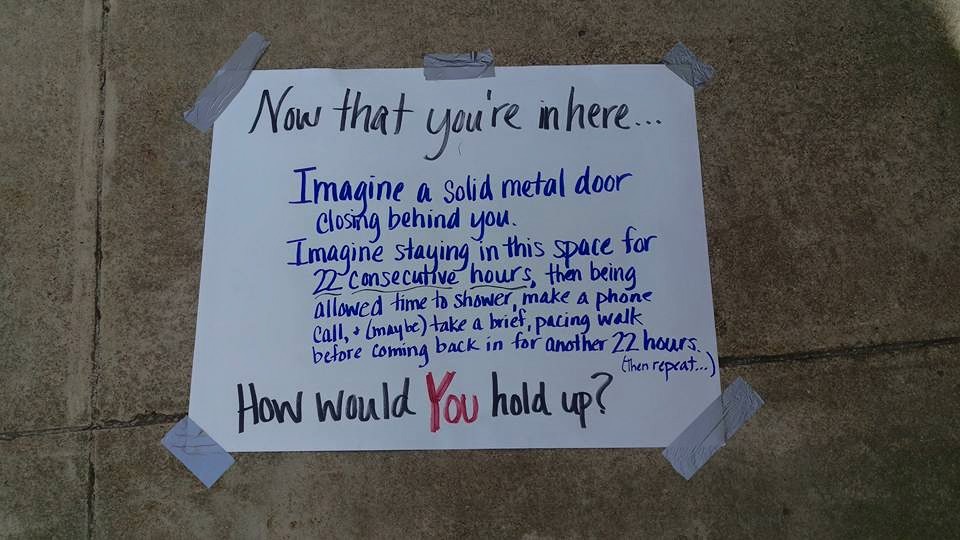 Now that you're in here...
Imagine a solid metal door
closing behind you.
Imagine staying in this space for
22 consecutive hours, then being
allowed time to shower, make a phone
call, + (maybe) take a brief, pacing walk
before coming back in for another 22 hours.
(then repeat...)
How would You hold up?